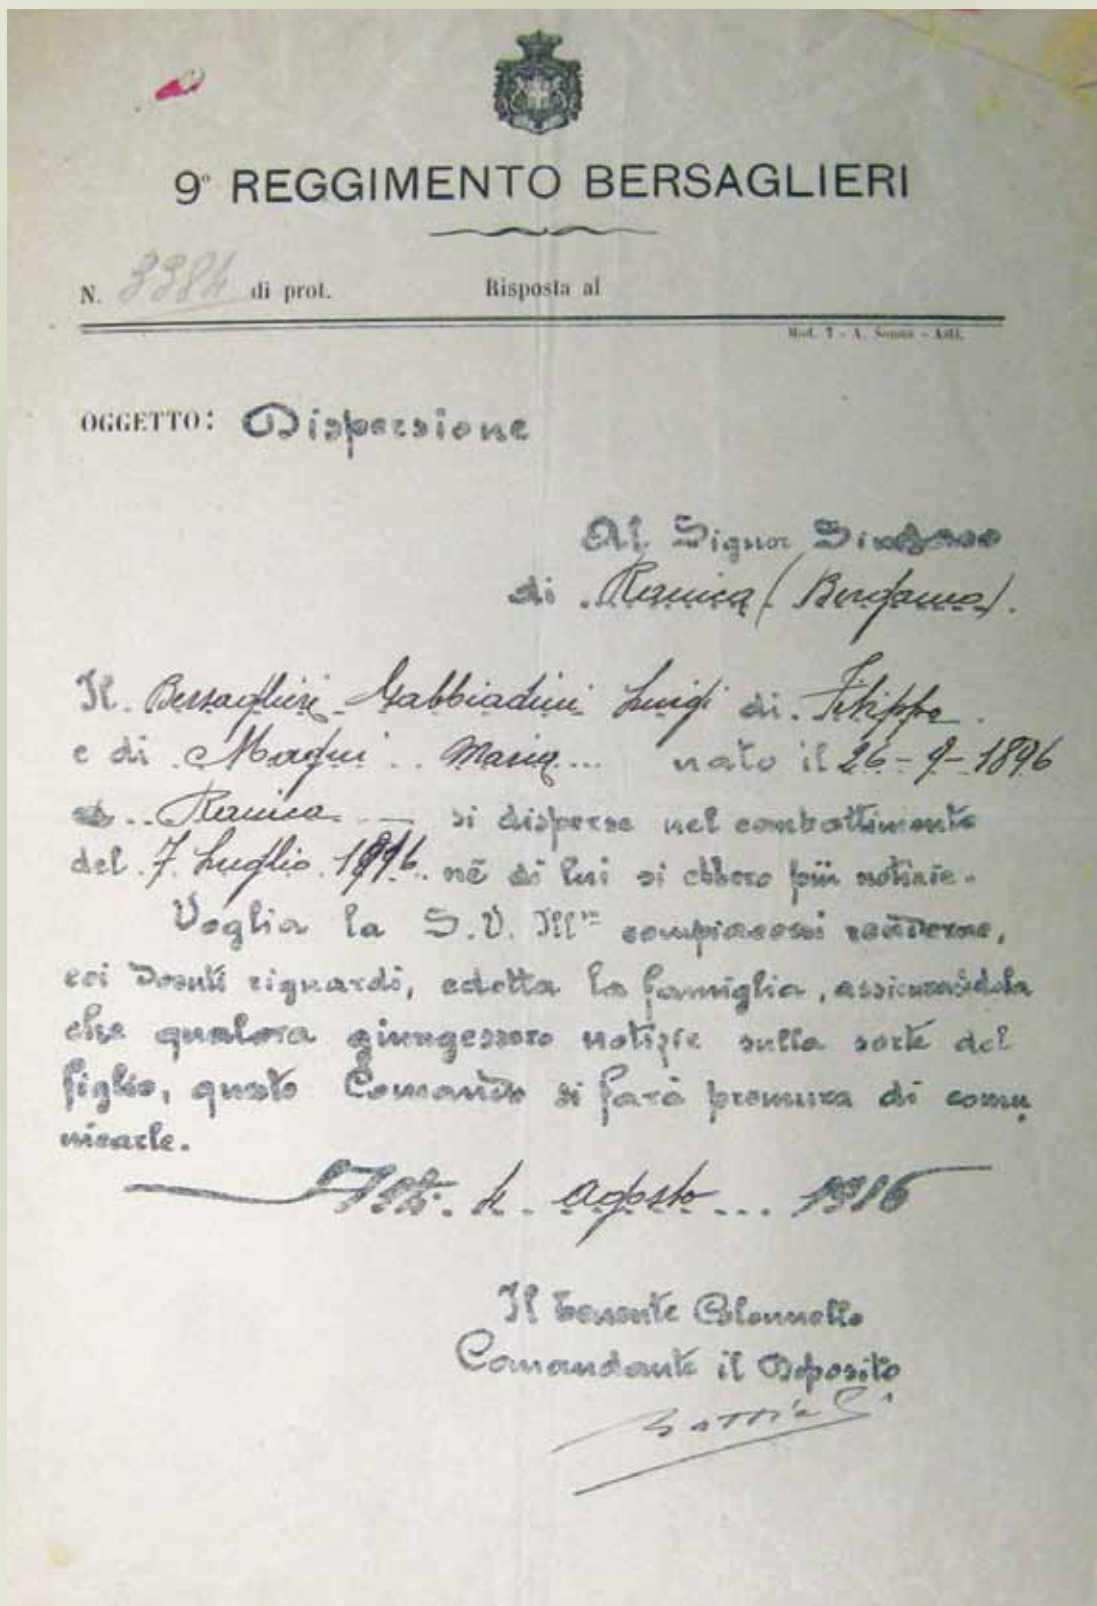 9° REGGIMENTO BERSAGLIERI
N. 3384 di prot. Risposta al
Mod. 7 - A. - Asti.
OGGETTO: Dispersione
Al Signor Sindaco
di Ranica (Bergamo).
Il Bersaglieri Gabbiadini Luigi di Filippo
e di Magni Maria nato il 26-9-1896
a Ranica si disperse nel combattimento
del 7 Luglio 1916 nè di lui si ebbero più notizie.
Voglia la S.V. Ill^ma compiacersi renderne,
coi dovuti riguardi, edotta la famiglia, assicurandola
che qualora giungessero notizie sulla sorte del
figlio, questo Comando si farà premura di comu
nicarle.
Asti. 4 agosto 1916
Il Tenente Colonnello
Comandante il Deposito